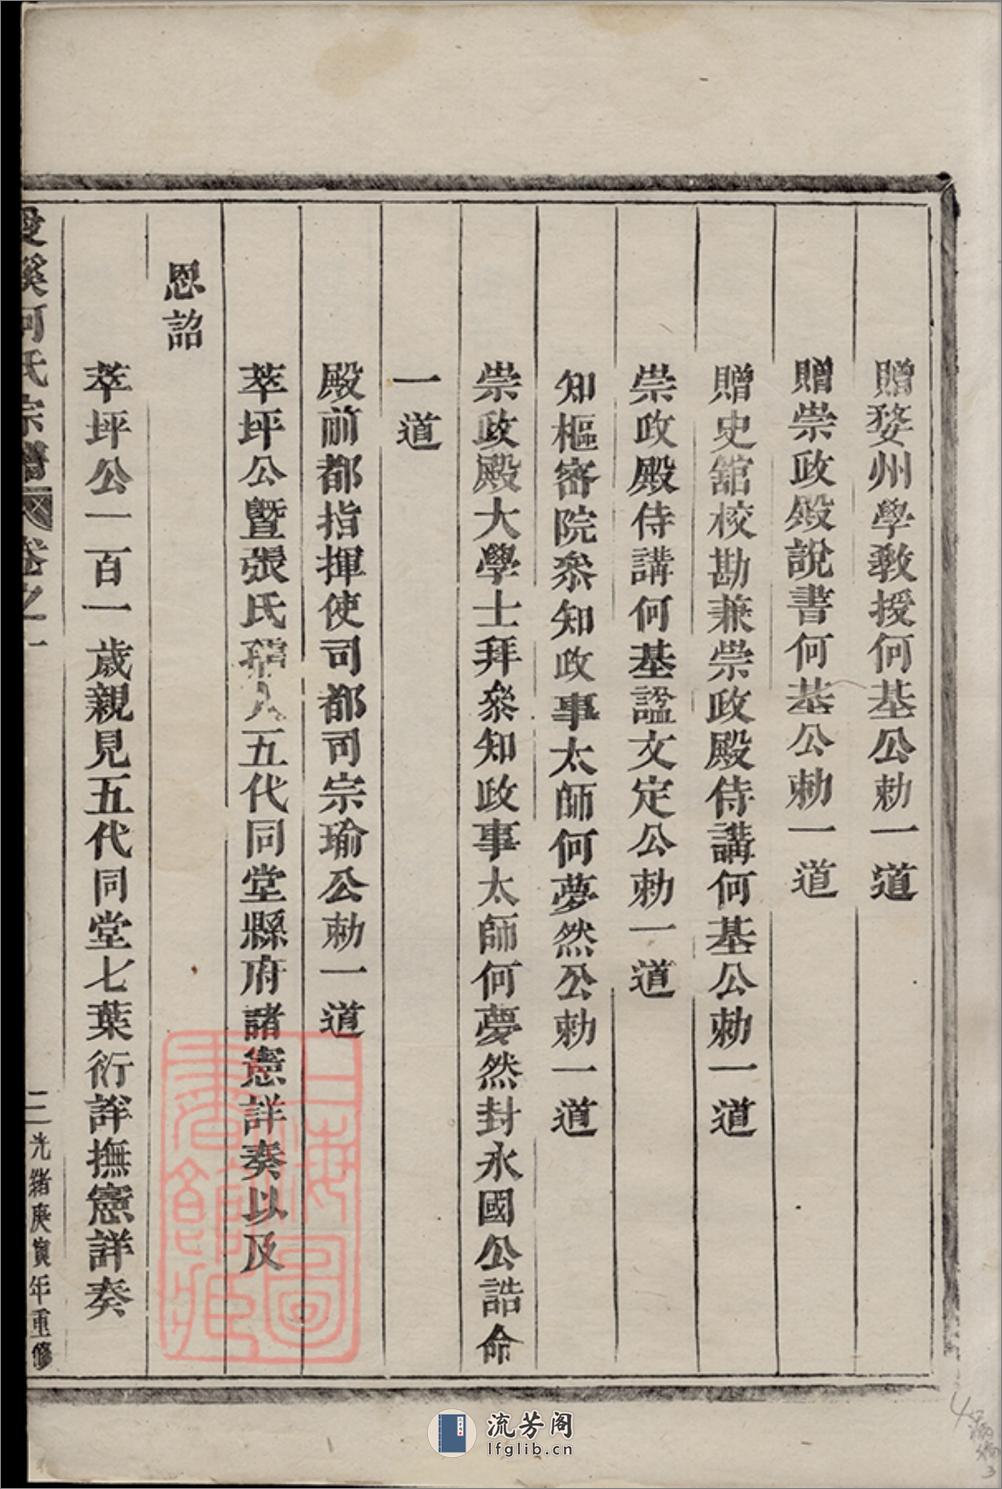 贈婺州學教授何基公勅一道
贈崇政殿說書何基公勅一道
贈史舘校勘兼崇政殿侍講何基公勅一道
崇政殿侍講何基謚文定公勅一道
知樞密院叅知政事太師何夢然公勅一道
崇政殿大學士拜叅知政事太師何夢然封永國公誥命
一道
殿前都指揮使司都司宗瑜公勅一道
萃坪公暨張氏孺人五代同堂縣府諸憲詳奏以及
恩詔
萃坪公一百一歲親見五代同堂七葉衍詳撫憲詳奏
溪何氏宗譜 卷之一
二 光緒庚寅年重修
上海圖書館藏
流芳阁
lfglib.cn